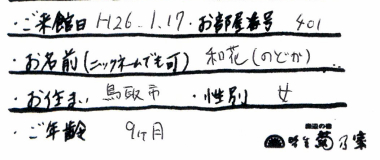 ・ご来館日 H26.1.17・お部屋番号 401
・お名前(ニックネームでも可) 和花(のどか)
・お住まい 鳥取市 ・性別 女
・ご年齢 9ヶ月
味暦 菊乃家